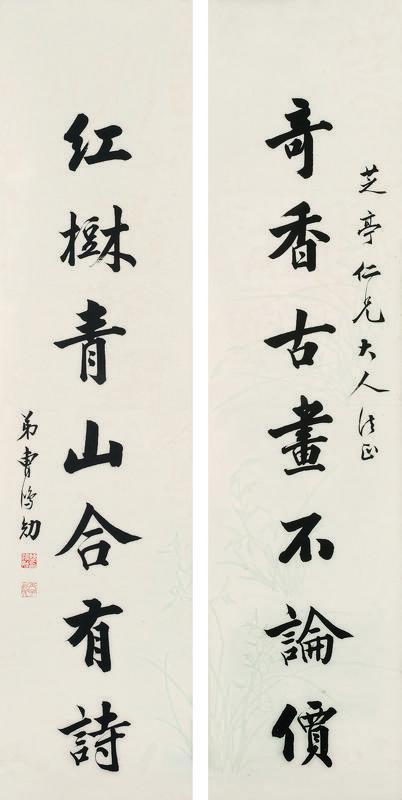 芝亭仁兄大人法正
奇香古畫不論價
红樹青山合有詩
弟曹鴻勛